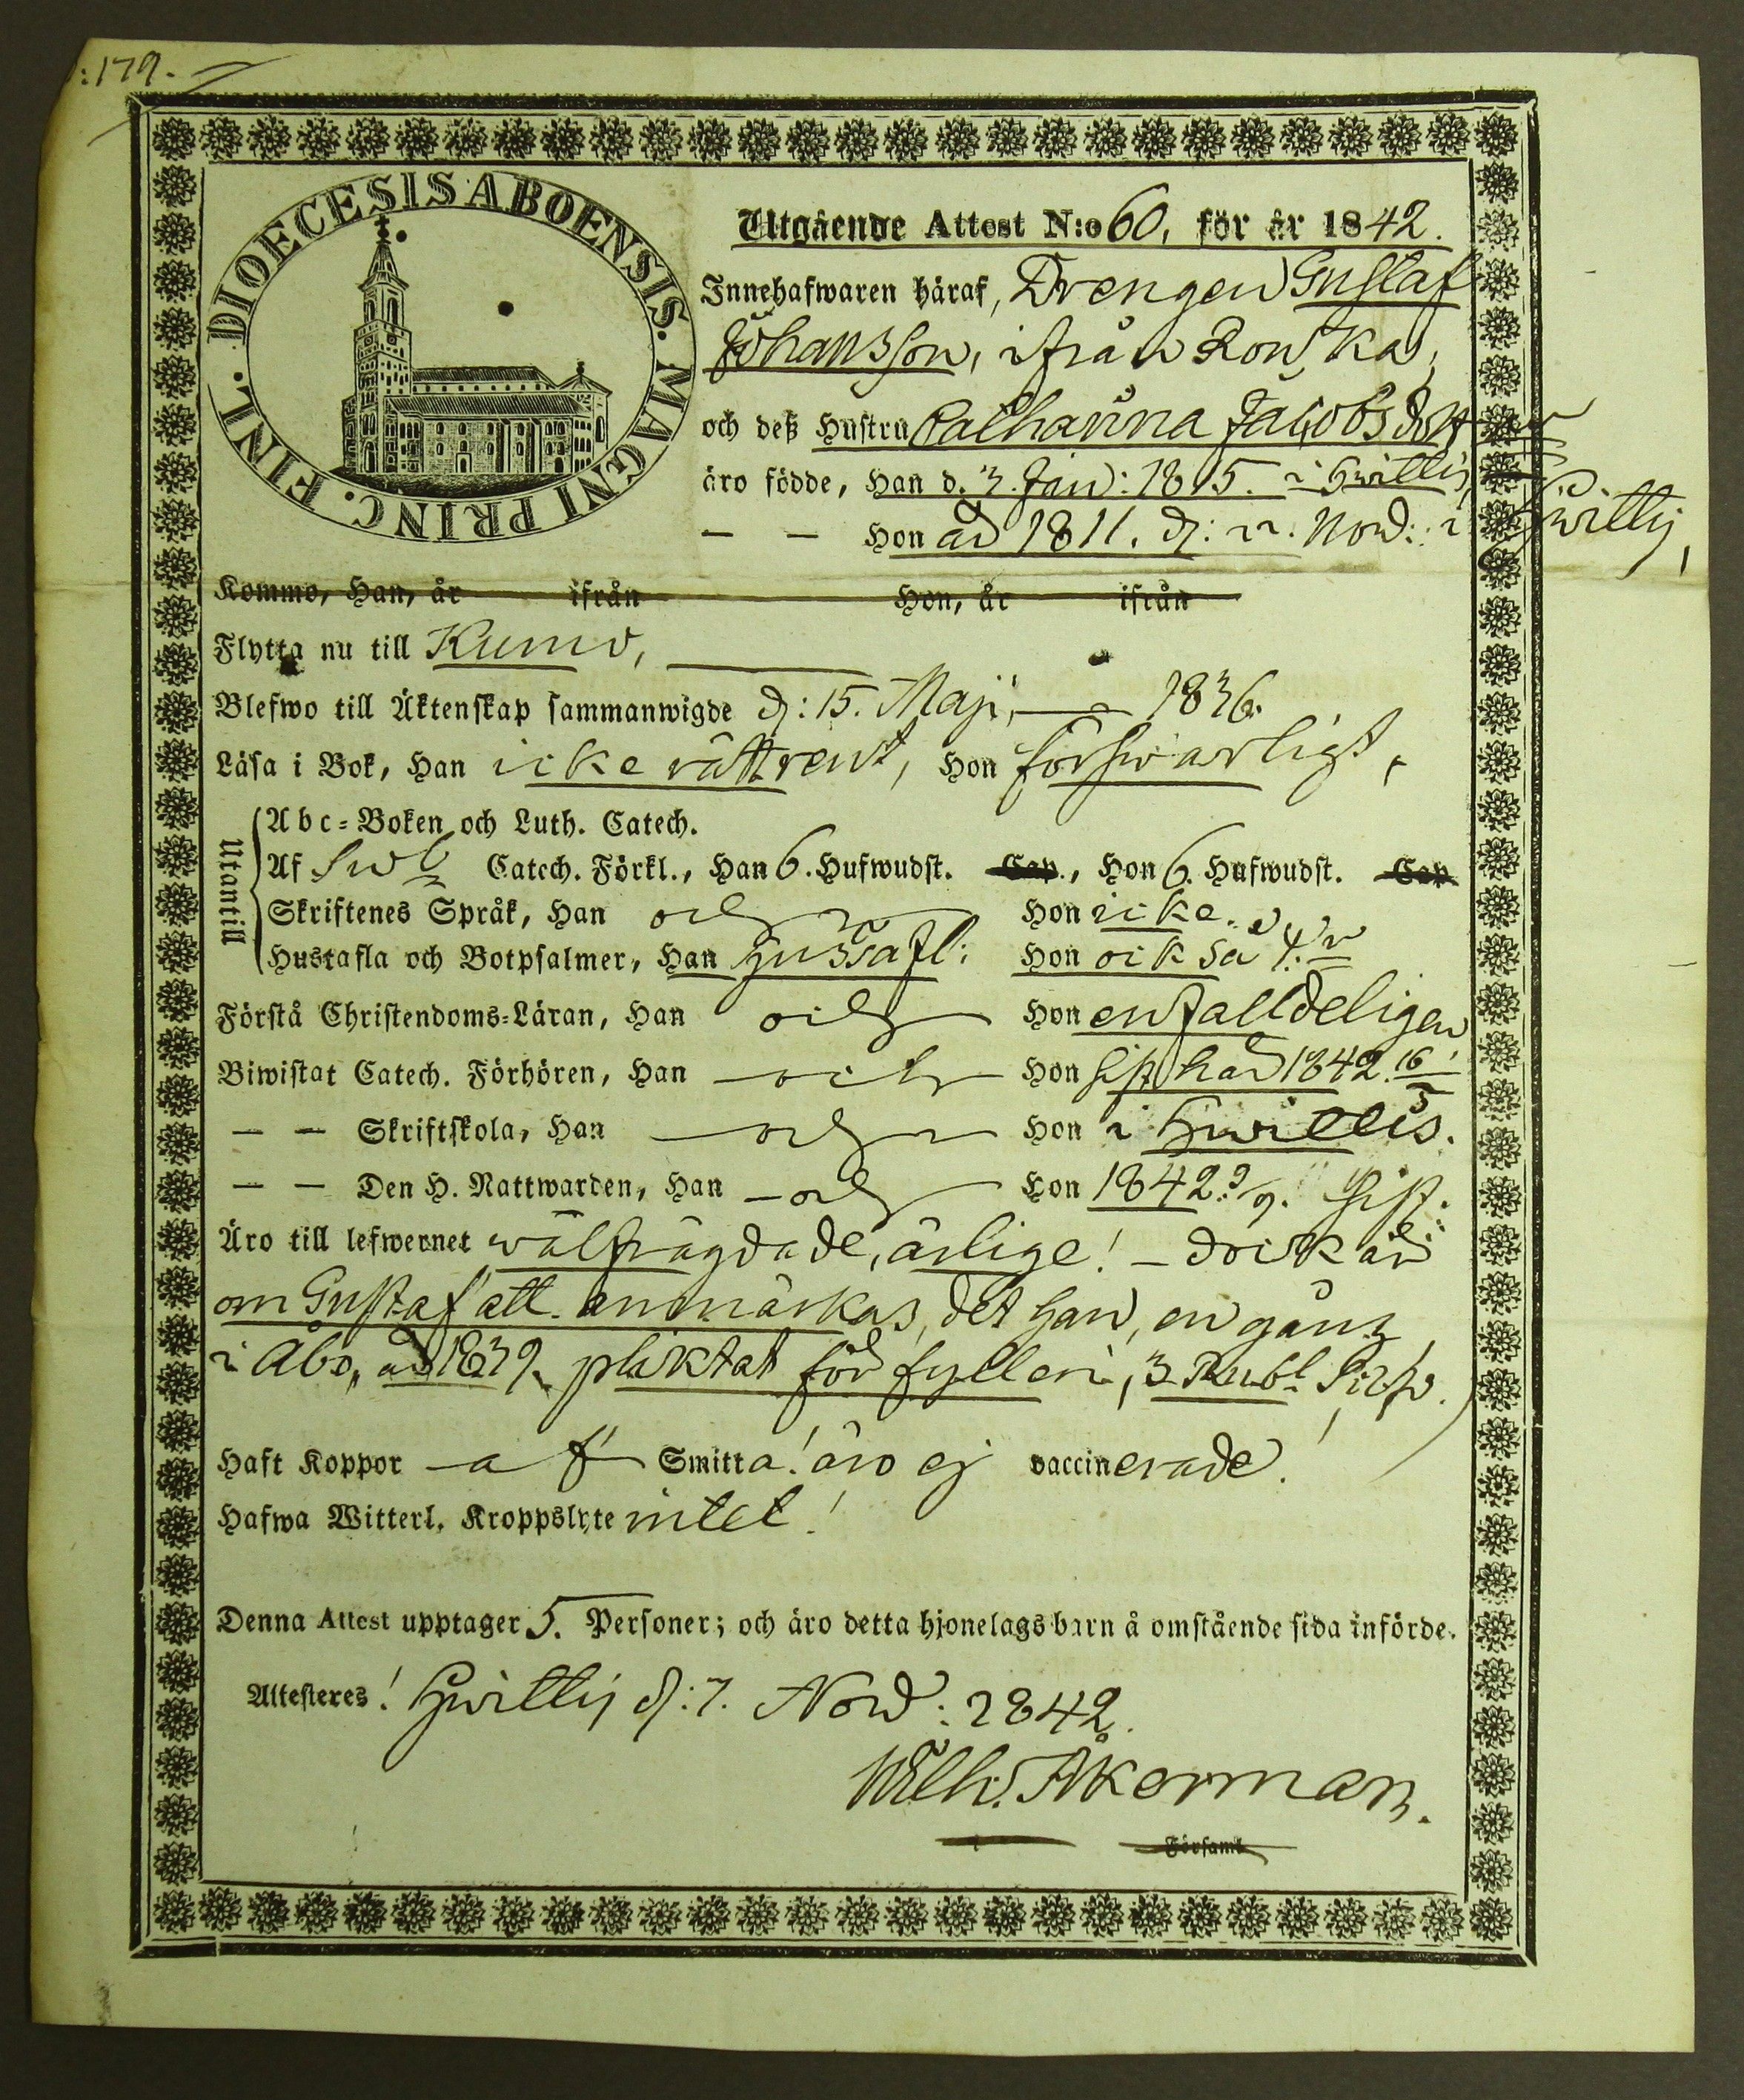 :179.
DIOECESIS ABOENSIS. MAGNI PRINC. FINL.
Utgående Attest N:o 60, för år 1842.
Innehafwaren häraf, Drengen Gustaf
Johansson, ifrån Rouska,
och deß Hustru Catharina Jacobsdotter
äro födde, Han d. 3. Jan: 1815. i Hwittis,
— — Hon år 1811. d: 22. Nov: i Hwittis,
Kommo, Han, år ifrån Hon, år ifrån
Flytta nu till Kumo,
Blefwo till Äktenskap sammanwigde d: 15. Maji, 1836.
Läsa i Bok, Han icke rätt rent, Hon förswarligt,
Utantill
Abc-Boken och Luth. Catech.
Af Catech. Förkl., Han 6. Hufwudst. Cap., Hon 6. Hufwudst. Cap
Skriftenes Språk, Han och Hon icke.
Hustafla och Botpsalmer, Han Hustafl: Hon ock så
Förstå Christendoms-Läran, Han och Hon enfalldeligen
Biwistat Catech. Förhören, Han och Hon sist här 1842. 16/3
— — Skriftskola, Han och Hon i Hwittis.
— — Den H. Nattwarden, Han och Hon 1842. sist.
Äro till lefwernet wälfrägdade, ärlige! - dock är
om Gustaf att anmärkas, det han, en gång
i Åbo, år 1839. pliktat för fylleri, 3 Rubl Silfw.
Haft Koppor af Smitta! äro ej vaccinerade!
Hafwa Witterl. Kroppslyte intet!
Denna Attest upptager 5. Personer; och äro detta hjonelags barn å omstående sida införde.
Attesteres! Hwittis d: 7. Nov: 1842.
Wilh. Åkerman.
Församl